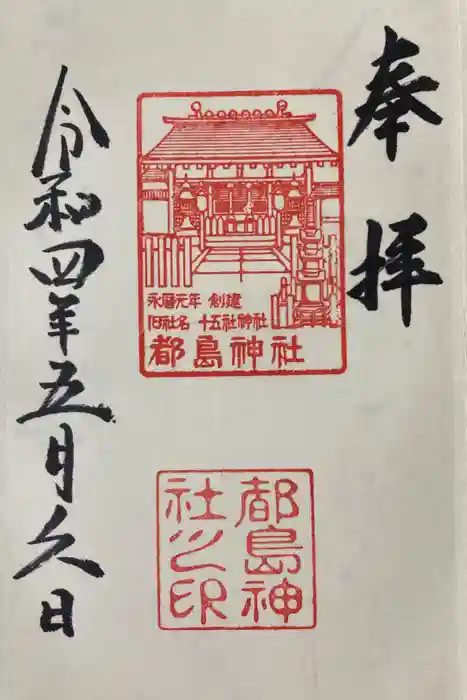 奉拝
永暦元年 創建
旧社名 十五社神社
都島神社
都島神
社之印
令和四年五月久日